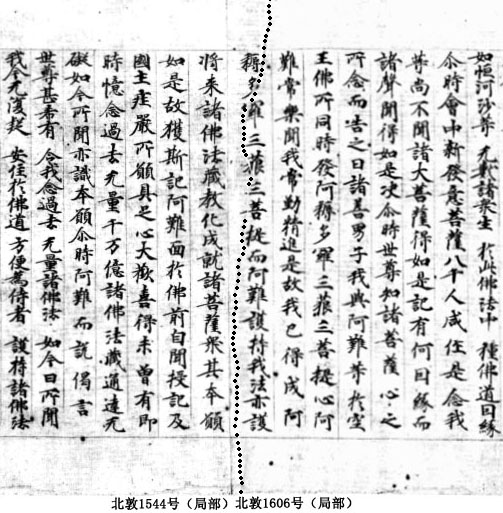 如恒河沙等 无數諸衆生 於此佛法中 種佛道因緣
尒時會中新發意菩薩八千人咸作是念我
等尚不聞諸大菩薩得如是記有何因緣而
諸聲聞得如是决尒時世尊知諸菩薩心之
所念而告之曰諸善男子我與阿難等於空
王佛所同時發阿耨多羅三藐三菩提心阿
難常樂聞我常勤精進是故我已得成阿
耨多羅三藐三菩提而阿難護持我法亦護
将来諸佛法藏教化成就諸菩薩衆其本願
如是故獲斯記阿難面於佛前自聞授記及
國土莊嚴所願具足心大歡喜得未曾有即
時憶念過去无量千万億諸佛法藏通達无
礙如今所聞亦識本願尒時阿難而說偈言
世尊甚希有 令我念過去 无量諸佛法 如今日所聞
我今无復疑 安住於佛道 方便為侍者 護持諸佛法
北敦1544号（局部）北敦1606号（局部）